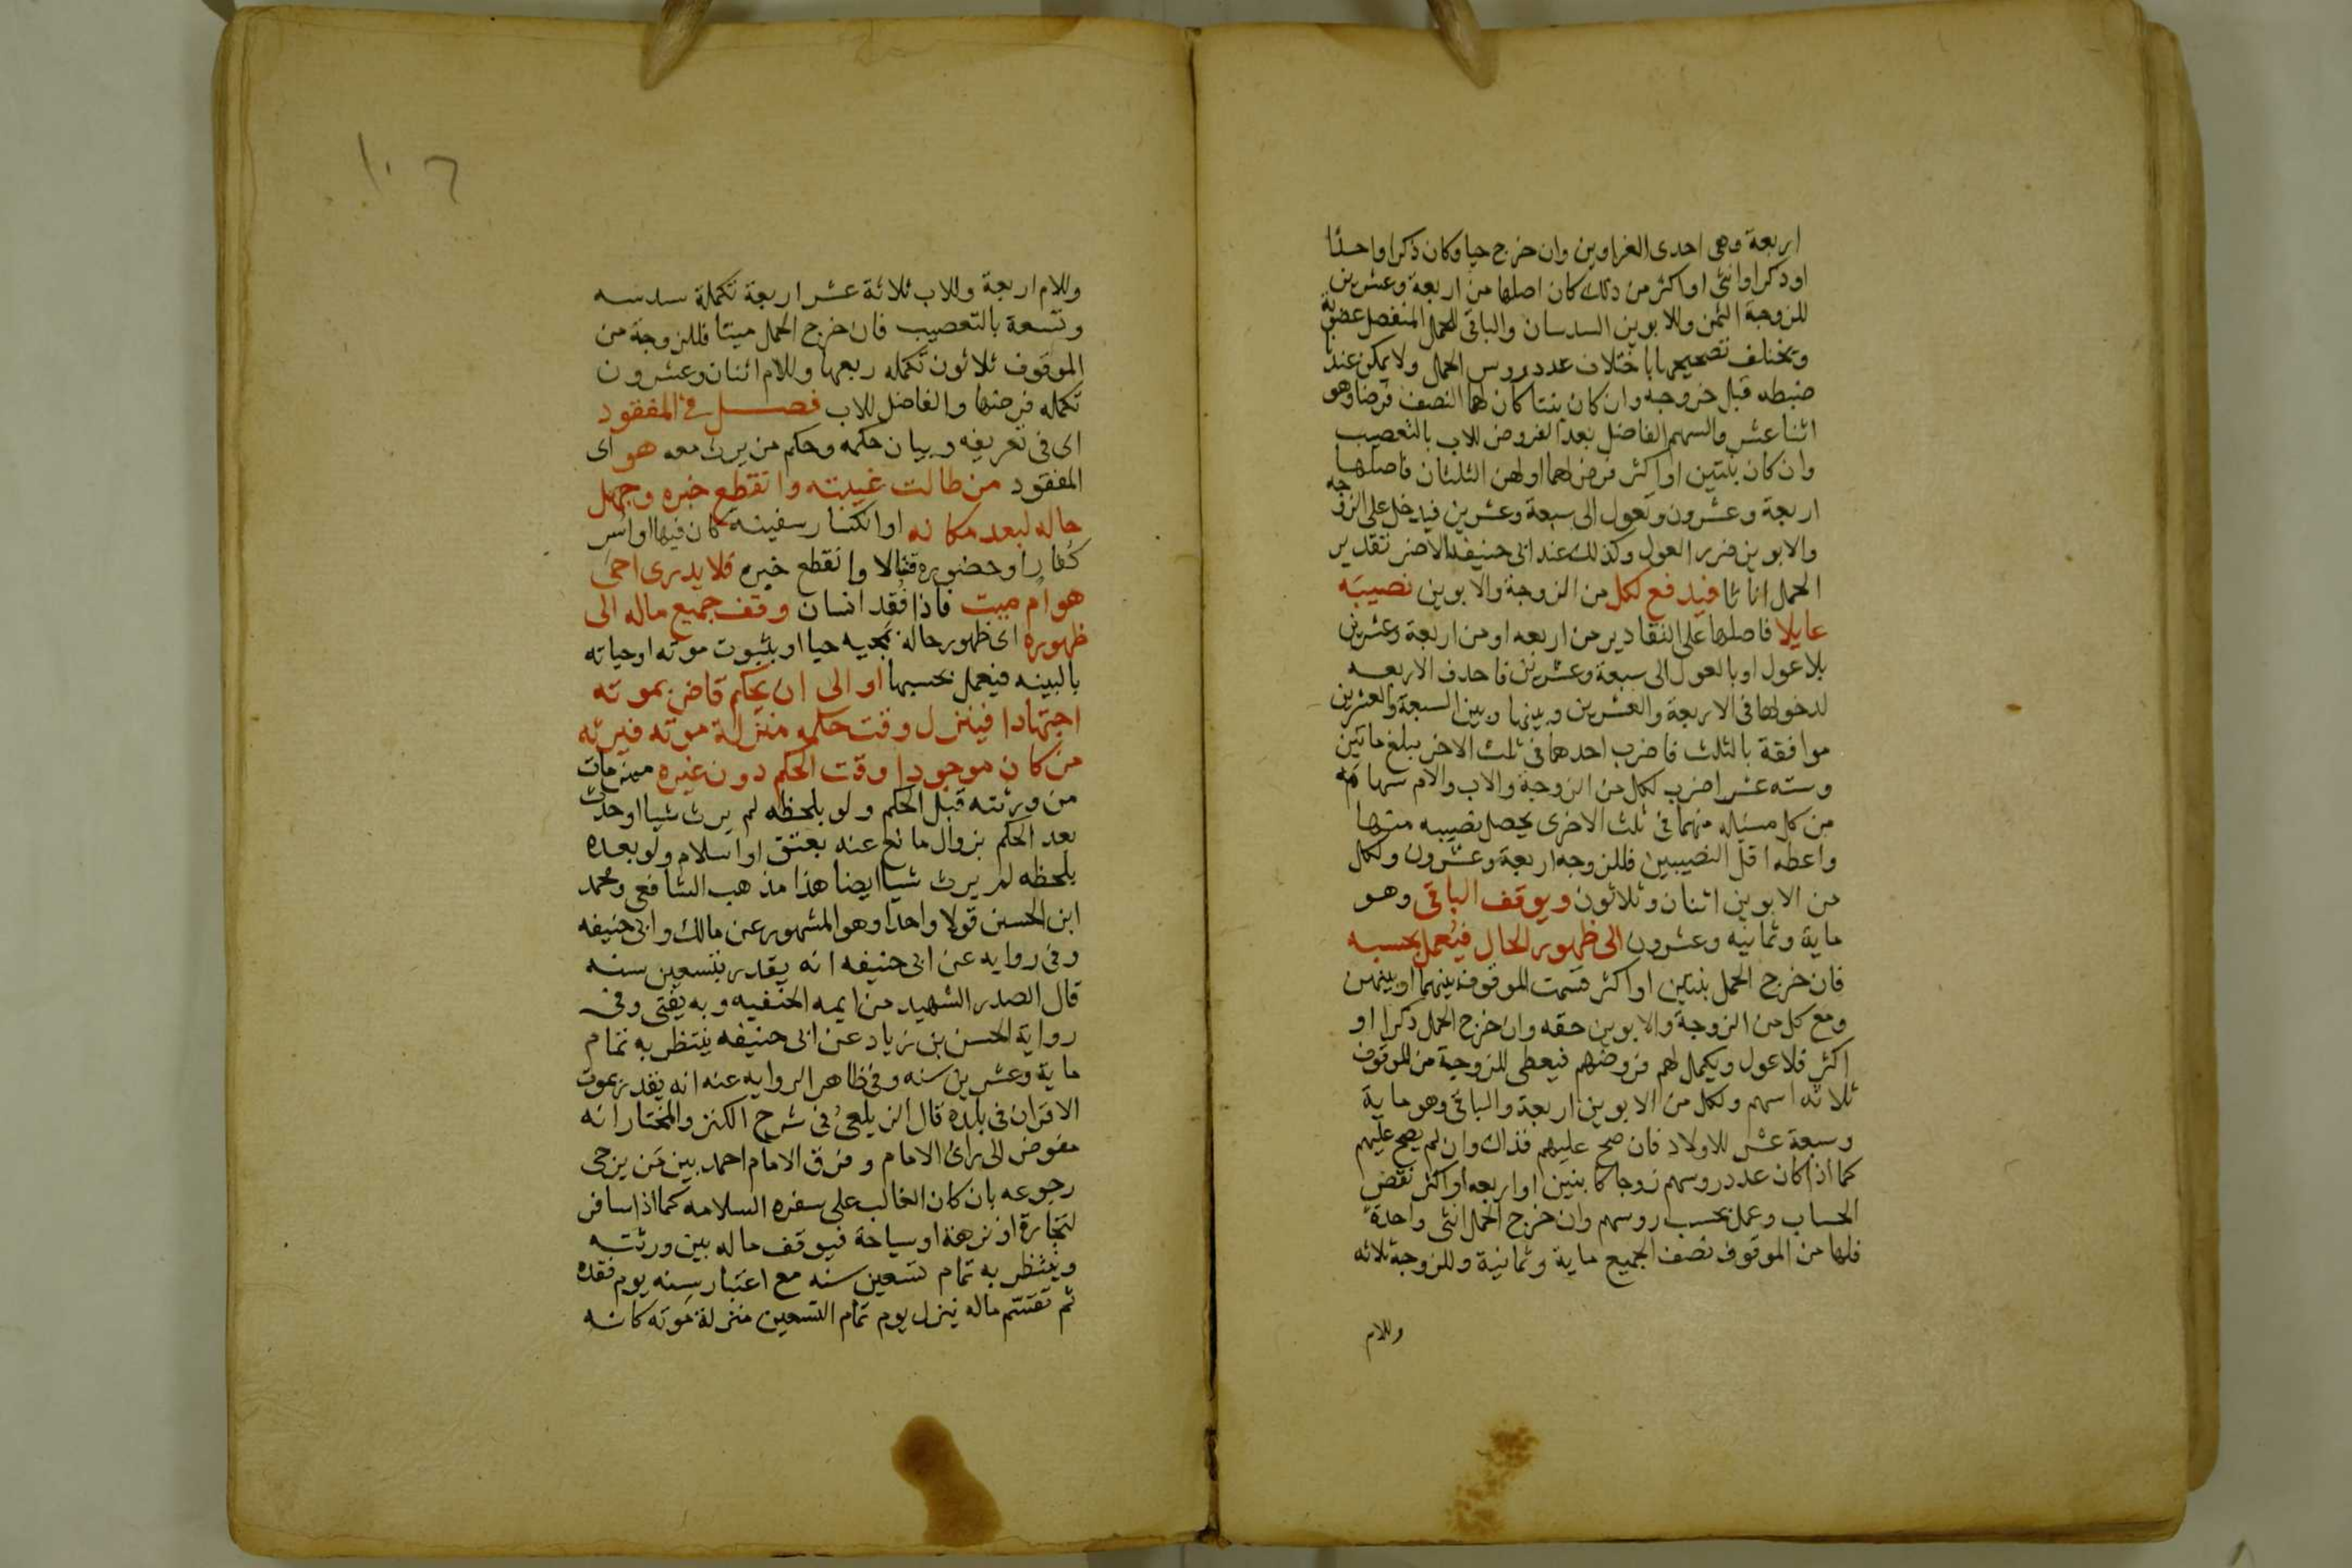 اربعة وهى احدى الغراوين وان خرج حيا وكان ذكرا واحدا
اوذكرا وانثى او اكثر من ذلك كان اصلها من اربعة وعشرين
للزوجة الثمن وللابوين السدسان والباقى للحمل المنفصل عصوبة
وتختلف تصحيحها باختلاف عدد روس الحمل ولا يمكن عندنا
ضبطه قبل خروجه وان كان بنتا كان لها النصف فرضا وهو
اثنا عشر والسهم الفاضل بعد الفروض للاب بالتعصيب
وان كان بنتين او اكثر فرض لهما او لهن الثلثان فاصلها
اربعة وعشرون وتعول الى سبعة وعشرين فيدخل على الزوجه
والابوين ضرر العول وكذلك عند ابى حنيفه الاضر تقدير
الحمل اناثا فيدفع لكل من الزوجة والابوين نصيبه
عايلا فاصلها على التقادير من اربعه او من اربعة وعشرين
بلا عول او بالعول الى سبعة وعشرين فاحدف الاربعه
لدخولها فى الاربعة والعشرين وبينها وبين السبعة والعشرين
موافقة بالثلث فاضرب احدهما فى ثلث الاخر يبلغ مايتين
وسته عشر اضرب لكل من الزوجة والاب والام سهامه
من كل مسئله منهما فى ثلث الاخرى يحصل نصيبه منها
واعطه اقل النصيبين فللزوجه اربعة وعشرون ولكل
من الابوين اثنان وثلاثون ويوقف الباقى وهو
ماية وثمانيه وعشرون الى ظهور الحال فيعمل بحسبه
فان خرج الحمل بنتين او اكثر قسمت الموقوف بينهما او بينهن
ومع كل من الزوجة والابوين حقه وان خرج الحمل ذكرا او
اكثر فلا عول ويكمل لهم فروضهم فيعطى للزوجية من الموقوف
ثلاثه اسهم ولكل من الابوين اربعة والباقى وهو ماية
وسبعة عشر للاولاد فان صح عليهم فذاك وان لم يصح عليهم
كما اذا كان عدد روسهم زوجا كابنين او اربعه او اكثر نقض
الحساب وعمل بحسب روسهم وان خرج الحمل انثى واحدة
فلها من الموقوف نصف الجميع ماية وثمانية وللزوجة ثلاثه
وللام
١٠٦
وللام اربعة وللاب ثلاثة عشر اربعة تكملة سدسه
وتسعة بالتعصيب فان خرج الحمل ميتا فللزوجة من
الموقوف ثلاثون تكمله ربعها وللام اثنان وعشرون
تكمله فرضها والفاضل للاب فصل فى المفقود
اى فى تعريفه وبيان حكمه وحكم من يرث معه هو اى
المفقود من طالت غيبته وانقطع خبره وجهل
حاله لبعد مكانه او انكسار سفينة كان فيها او اسر
كفار او حضوره قتالا وانقطع خبره فلا يدرى احى
هو ام ميت فاذا فقد انسان وقف جميع ماله الى
ظهوره اى ظهور حاله بمجيه حيا او بثبوت موته او حياته
بالبينه فيعمل بحسبها او الى ان يحكم قاض بموته
اجتهادا فينزل وقت حكمه منزلة موته فيرثه
من كان موجودا وقت الحكم دون غيره ممن مات
من ورثته قبل الحكم ولو بلحظه لم يرث شيا او حدث
بعد الحكم بزوال مانع عنه بعتق او اسلام ولو بعده
بلحظه لم يرث شيا ايضا هذا مذهب الشافعى ومحمد
ابن الحسين قولا واحدا وهو المشهور عن مالك وابى حنيفه
وفى روايه عن ابى حنيفه انه يقدر بتسعين سنه
قال الصدر الشهيد من ايمه الحنفيه وبه يفتى وفى
رواية الحسن بن زياد عن ابى حنيفه ينتظر به تمام
ماية وعشرين سنه وفى ظاهر الروايه عنه انه يقدر بموت
الاقران فى بلده قال الزيلعى فى شرح الكنز والمختار انه
مفوض الى راى الامام وفرق الامام احمد بين من يرجى
رجوعه بان كان الغالب على سفره السلامه كما اذا سافر
لتجارة او نزهة او سياحة فيوقف ماله بين ورثته
وينتظر به تمام تسعين سنه مع اعتبار سنه يوم فقده
ثم تقسم ماله ينزل يوم تمام التسعين منزلة موته كانه